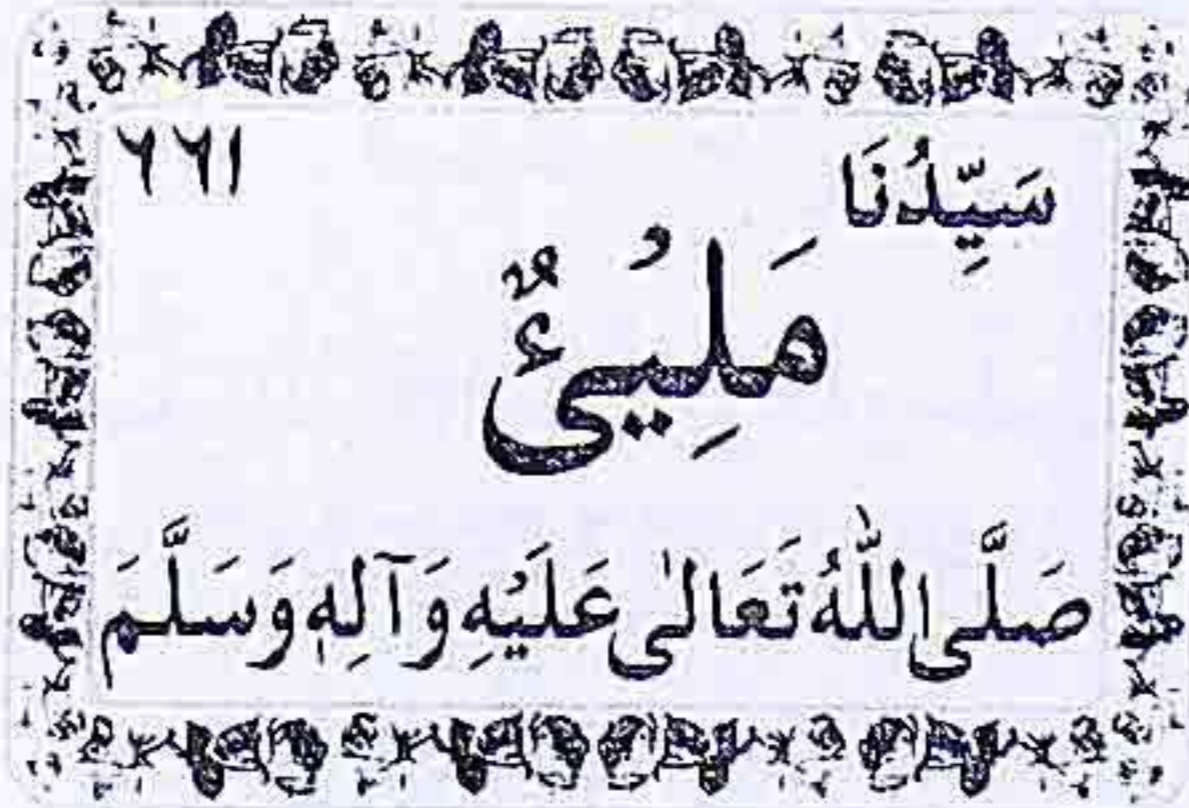 سَيِّدُنَا ٦٦١
مَلِيْئٌ
صَلَّى اللّٰهُ تَعَالٰى عَلَيْهِ وَآلِهٖ وَسَلَّمَ